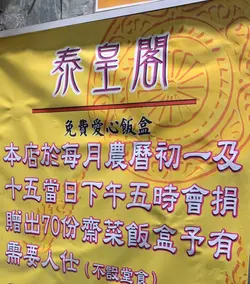 泰皇閣
免費愛心飯盒
本店於每月農曆初一及
十五當日下午五時會捐
贈出70份齋菜飯盒予有
需要人仕(不設堂食)